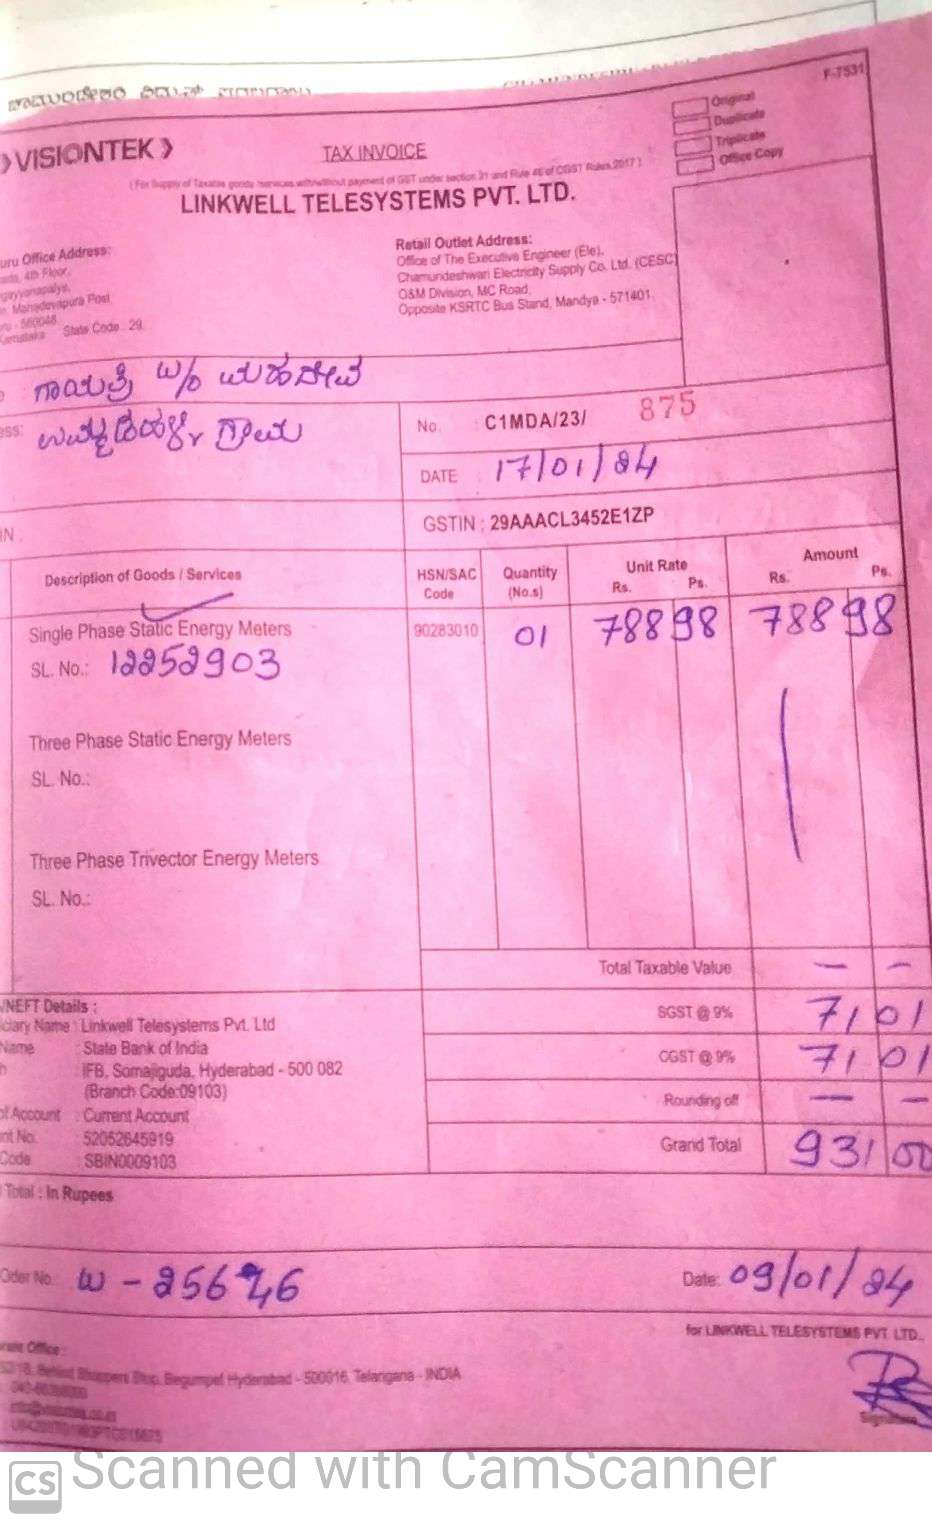 F-7531
VISIONTEK
TAX INVOICE
Original
Duplicate
Triplicate
Office Copy
( For Supply of Taxable goods /services with/without payment of GST under section 31 and Rule 46 of CGST Rules,2017 )
LINKWELL TELESYSTEMS PVT. LTD.
uru Office Address:
4th Floor,
Mahadevapura Post
560048
State Code : 29
Retail Outlet Address:
Office of The Executive Engineer (Ele),
Chamundeshwari Electricity Supply Co. Ltd. (CESC)
O&M Division, MC Road,
Opposite KSRTC Bus Stand, Mandya - 571401
ಗಾಯತ್ರಿ w/o ಮಹದೇವ
ess:
ಗ್ರಾಮ
No. : C1MDA/23/ 875
DATE 17/01/24
IN :
GSTIN : 29AAACL3452E1ZP
Description of Goods / Services
HSN/SAC Code
Quantity (No.s)
Unit Rate Rs. Ps.
Amount Rs. Ps.
Single Phase Static Energy Meters 90283010 01 788 98 788 98
SL. No.: 12252903
Three Phase Static Energy Meters
SL. No.:
Three Phase Trivector Energy Meters
SL. No.:
Total Taxable Value — —
SGST @ 9% 71 01
CGST @ 9% 71 01
Rounding off — —
Grand Total 931 00
/NEFT Details :
ciary Name : Linkwell Telesystems Pvt. Ltd
Name : State Bank of India
h : IFB, Somajiguda, Hyderabad - 500 082
(Branch Code:09103)
of Account : Current Account
nt No. : 52052645919
Code : SBIN0009103
Total : In Rupees
Oder No. W - 25646
Date: 09/01/24
for LINKWELL TELESYSTEMS PVT. LTD.,
rate Office :
Behind Shoppers Stop, Begumpet Hyderabad - 500016. Telangana - INDIA
Signature
CS Scanned with CamScanner